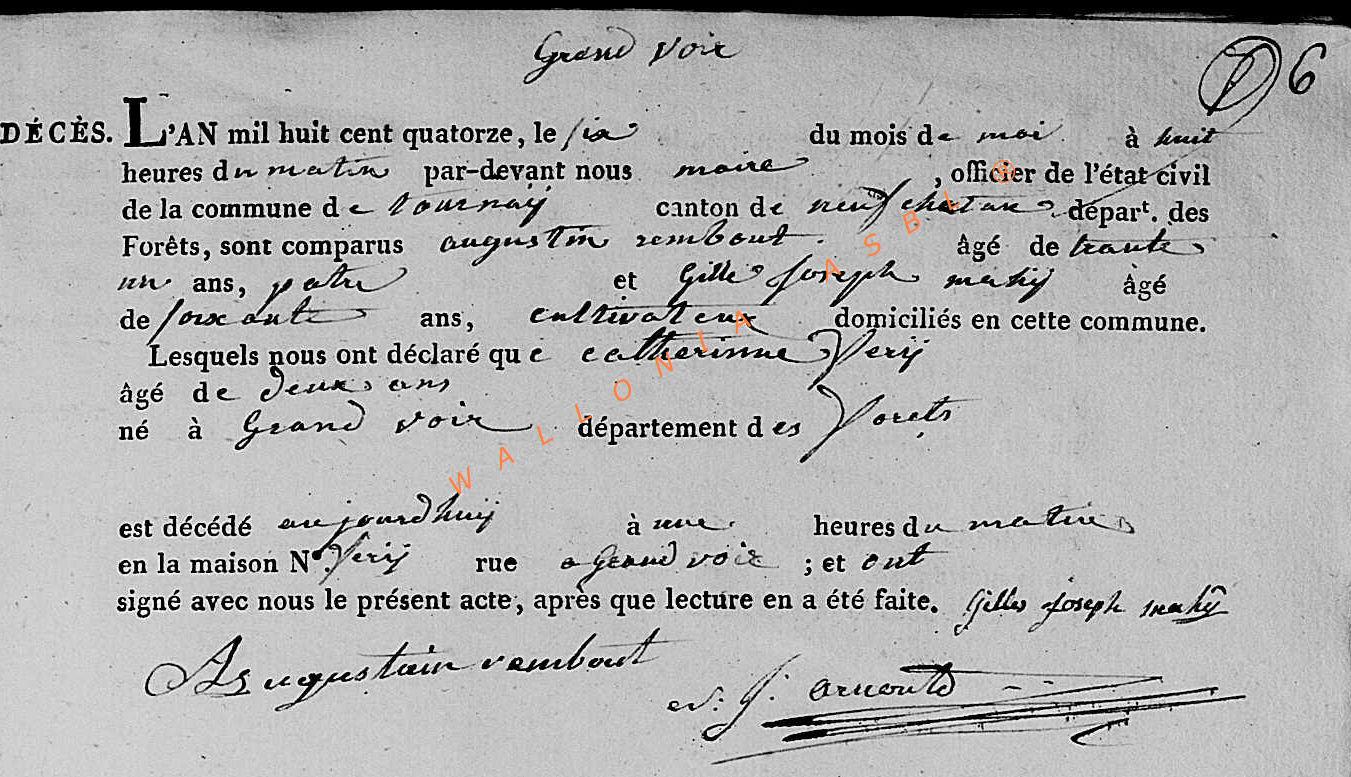 Grand voir
6
DÉCÈS. L'AN mil huit cent quatorze, le six du mois de mai à huit
heures du matin par-devant nous maire , officier de l'état civil
de la commune de tournaÿ canton de neufchatau départ. des
Forêts, sont comparus augustin rembout . âgé de trante
un ans, patre et Gille Joseph mahÿ âgé
de soixante ans, cultivateur domiciliés en cette commune.
Lesquels nous ont déclaré que catherinne Verÿ
âgé de deux ans
né à Grand voir département des Forets
est décédé aujourdhuÿ à une heures du matin
en la maison N° Verÿ rue a Grand voir ; et ont
signé avec nous le présent acte, après que lecture en a été faite. Gilles Joseph mahÿ
Augustain rembout
J: arnould
WALLONIA ASBL ®